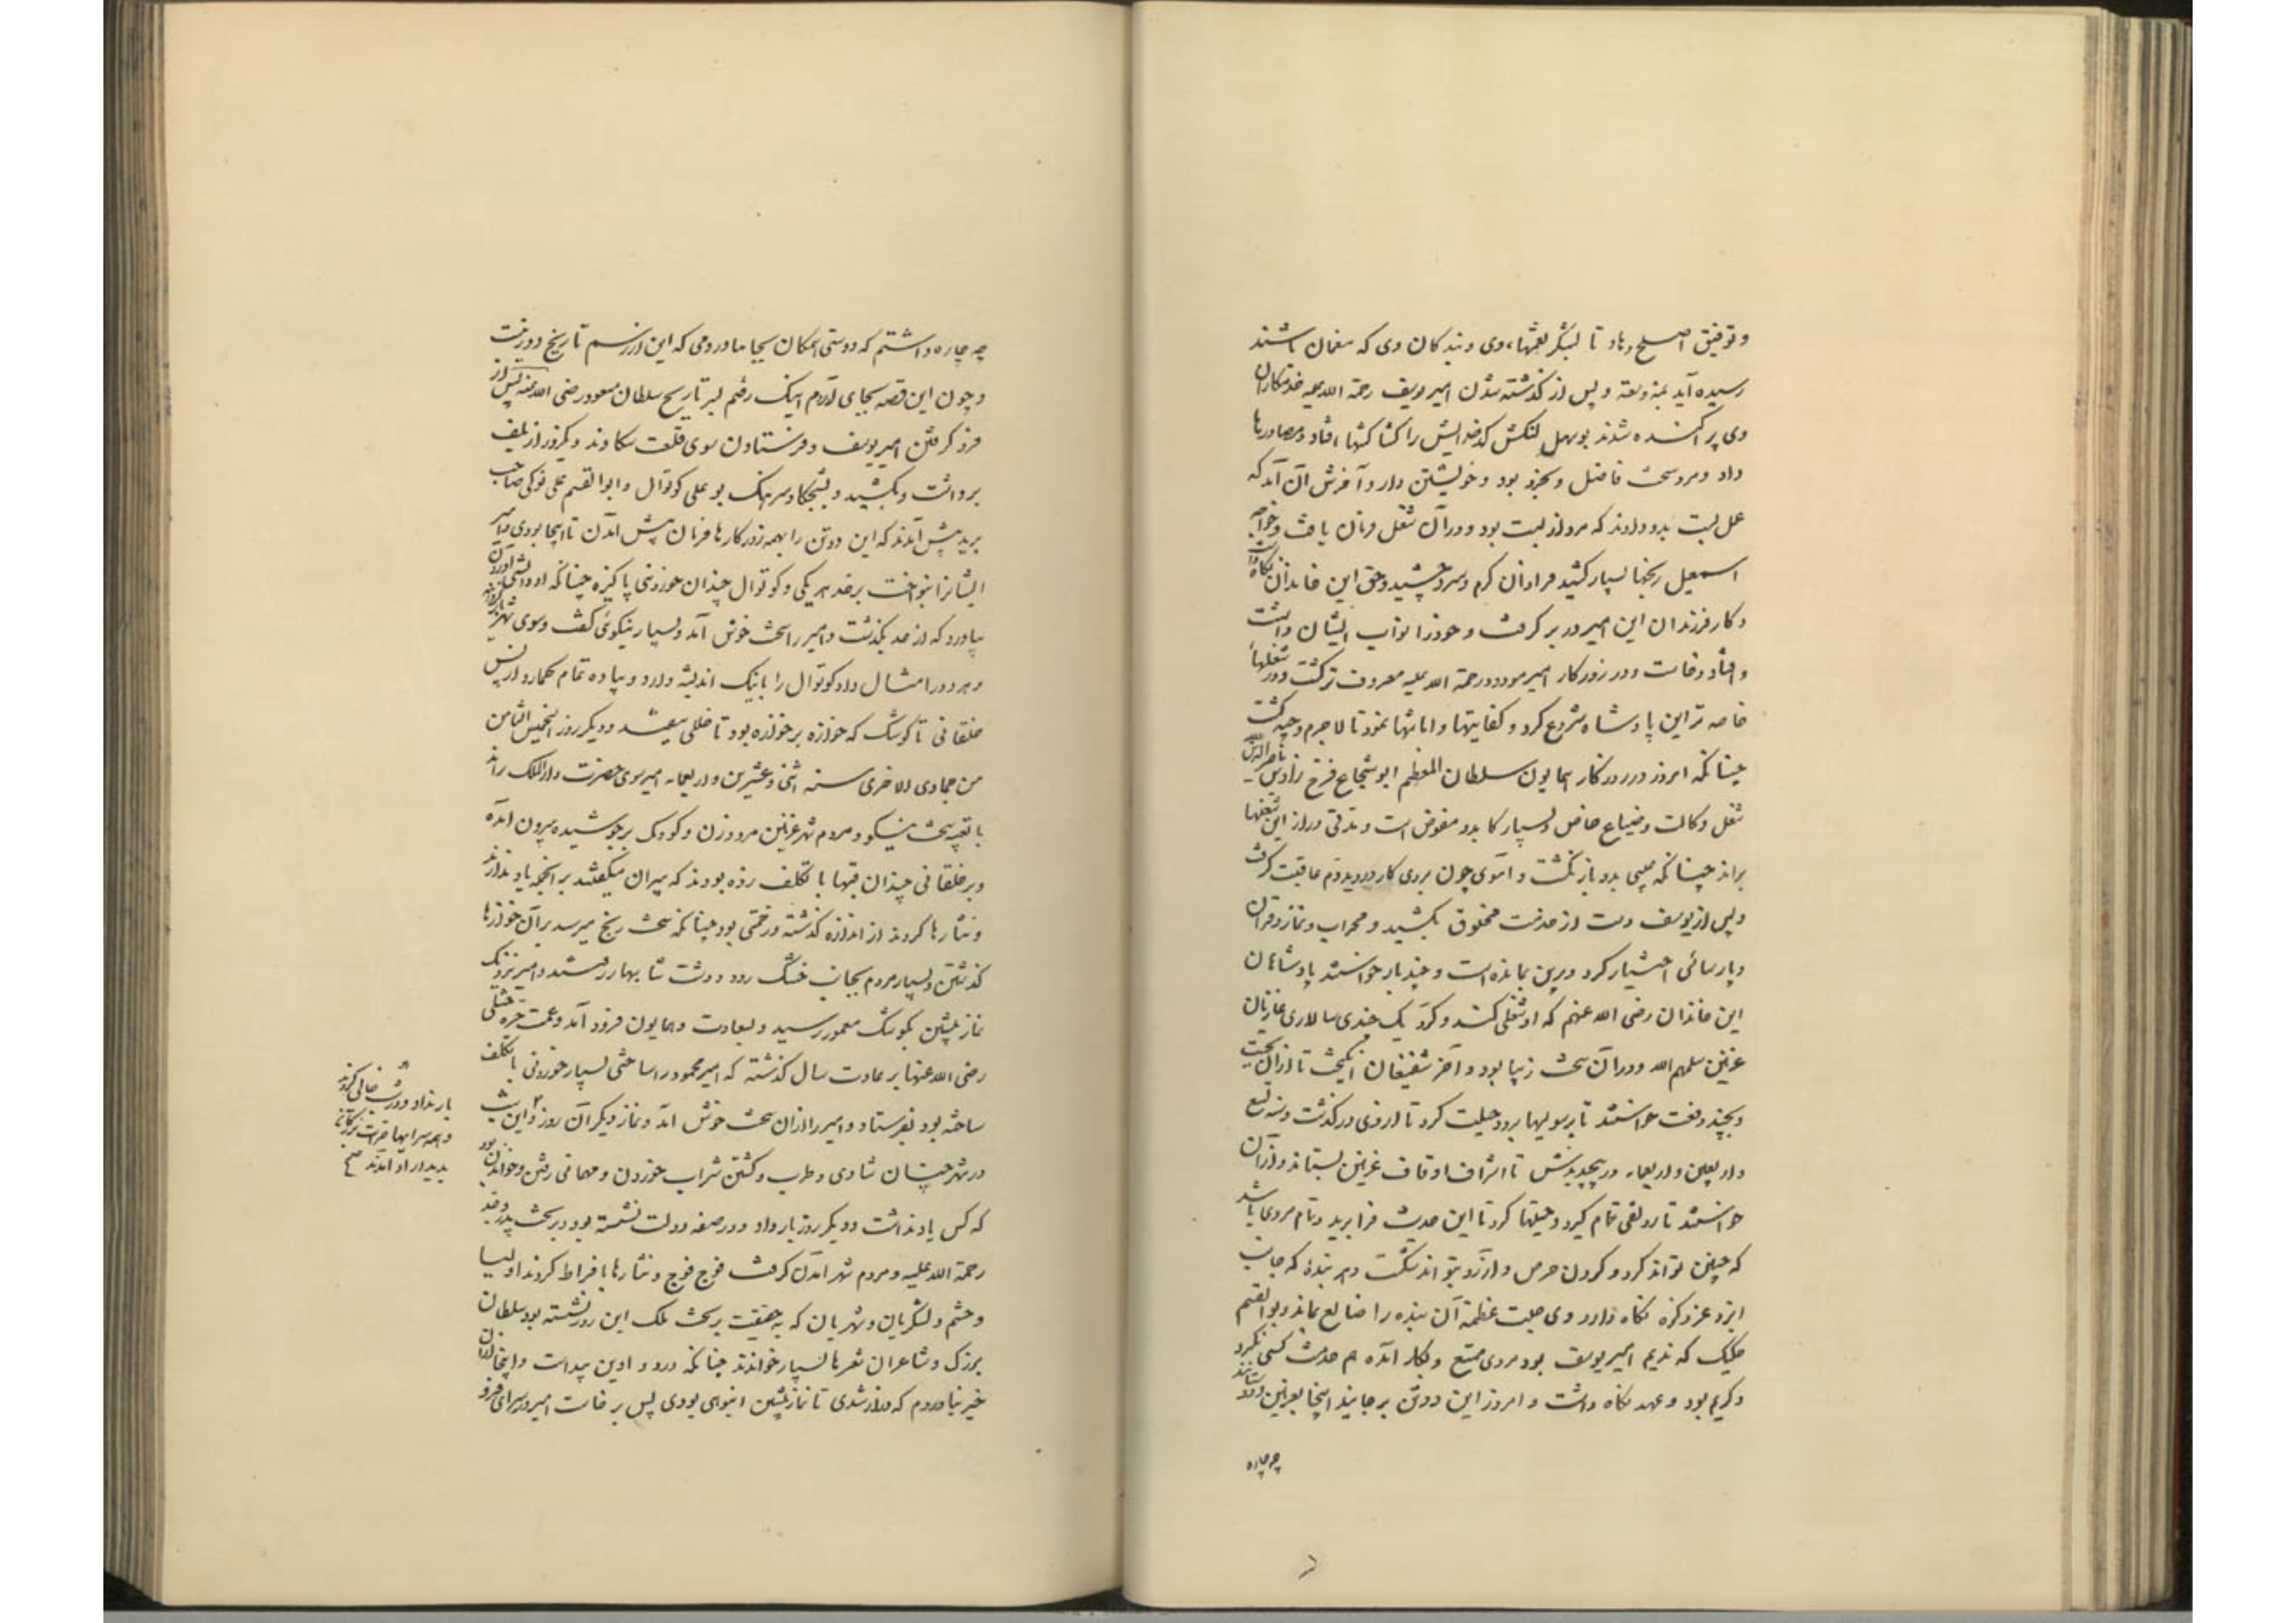 و توفیق اصلح دهاد تا بشکر نعمتهاء وی و بندگان وی که منعمان باشند
رسیده آید بمنه و سعة و پس از گذشته شدن امیر یوسف رحمة الله علیه خدمتکاران
وی پراکنده شدند بوسهل لنکش کدخدایش را کشاکشها افتاد و مصادرها
داد و مرد سخت فاضل و بخرد بود و خویشتن دار و آخرش آن آمد که
عمل بست بدو دادند که مرد از بست بود و در آن شغل فرمان یافت و خواجه
اسمعیل رنجها بسیار کشید فراوان گرم و سرد چشید و حق این خاندان نگاه داشت
و کار فرزندان این امیر در بر گرفت و خود را نواب ایشان داشت
و افتاد و خاست و در روزگار امیر مودود رحمة الله علیه معروف تر گشت و در شغلهاء
خاصه تر این پادشاه شروع کرد و کفایتها و امانتها نمود تا لاجرم وجیه گشت
چنانکه امروز در روزگار همایون سلطان المعظم ابوشجاع فرخ زاد بن ناصر الدین الله
شغل وکالت و ضیاع خاص و بسیار کار بدو مفوض است و مدتی دراز این شغلها
براند چنانکه عیبی بدو باز نگشت و آموی چون بروی کار دروید دم عافیت گرفت
و پس از یوسف دست از خدمت مخلوق بکشید و محراب و نماز و قرآن
و پارسائی اختیار کرد و برین بمانده است و چند بار خواستند پادشاهان
این خاندان رضی الله عنهم که او شغلی کند و کرد یک چندی سالاری غازیان
غزنین سلمهم الله و در آن سخت زیبا بود و آخر شفیعان انگیخت تا از آن بجست
و بچند دفعت خواستند تا برسولیها برود حیلت کرد تا از وی در گذشت و سنه تسع
و اربعین و اربعمایه در پیچیدندش تا اشراف اوقاف غزنین بستاند و از آن
خواستند تا رونقی تمام گیرد و حیلتها کرد تا این حدیث فرا برید و تمام مردی باشد
که چنین تواند کرد و گردن حرص و آرزو بتواند شکست و هر بنده که جانب
ایزد عز ذکره نگاه دارد وی جلت عظمة آن بنده را ضایع نماند و بوالقسم
حکیک که ندیم امیر یوسف بود مردی ممتع و بکار آمده هم خدمت کسی نکرد
و کریم بود و عهد نگاه داشت و امروز این دو تن بر جایند اینجا بغزنین و دوستانند
چه چاره
چه چاره داشتم که دوستی همگان بجا ماوردمی که این از رسم تاریخ دور نیست
و چون این قصه بجای آوردم اینک رفتم بسر تاریخ سلطان مسعود رضی الله عنه پس از
فرو گرفتن امیر یوسف و فرستادن سوی قلعت سکاوند دیگر روز از بلف
برداشت و بکشید و بشجکاو سرهنگ بو علی کوتوال و ابوالقسم علی نوکی صاحب
برید پیش آمدند که این دو تن را بهمه روزگارها فرمان پیش آمدن تا اینجا بودی و امیر
ایشانرا بنواخت بر حد هر یکی و کوتوال چندان خوردنی پاکیزه چنانکه او دانستی آوردن
بیاورد که از حد بگذشت و امیر را سخت خوش آمد و بسیار نیکوئی گفت و سوی شهر باز گردانید
و هر دو را مثال داد کوتوال را با نیک اندیشه دارد و پیاده تمام گمارد از پس
خلقانی تا کوشک که خوازه بر خوازه بود تا خللی نیفتد و دیگر روز الخمیس الثامن
من جمادی الاخری سنه اثنی و عشرین و اربعمایه امیر سوی حضرت دار الملک راند
با تعبیه سخت نیکو و مردم شهر غزنین مرد و زن و کودک برجوشیده بیرون آمده
و بر خلقانی چندان قبها با تکلف زده بودند که پیران میگفتند بر آنجمله یاد ندارند
و نثارها کردند از اندازه گذشته و زحمتی بود چنانکه سخت رنج میرسد بر آن خوازها
گذشتن و بسیار مردم بجانب خشک رود و دشت شابهار رفتند و امیر نزدیک
نماز پیشین بکوشک معمور رسید و بسعادت و همایون فرود آمد و عمت حره ختلی
رضی الله عنها بر عادت سال گذشته که امیر محمود را ساختی بسیار خوردنی با تکلف
ساخته بود بفرستاد و امیر را از آن سخت خوش آمد و نماز دیگر آن روز ۲ و این شب
در شهر چندان شادی و طرب و گشتن شراب خوردن و مهمانی رفتن و خواندن بود
که کس یاد نداشت و دیگر روز بار داد و در صفه دولت نشسته بود بر تخت پدر و جد
رحمة الله علیه و مردم شهر آمدن گرفت فوج فوج و نثارها بافراط کردند اولیا
و حشم و لشگریان و شهریان که بحقیقت بر تخت ملک این روز نشسته بود سلطان
بزرگ و شاعران شعرها بسیار خواندند چنانکه در دواوین پیداست و اینجا از آن
خبر نیاوردم که دراز شدی تا نماز پیشین انبوهی بودی پس برخاست امیر در سرای فرو
بار نداد و در شب خالی کردند
و همه سرایها حرات بزرگان
بدیدار او آمدند صح